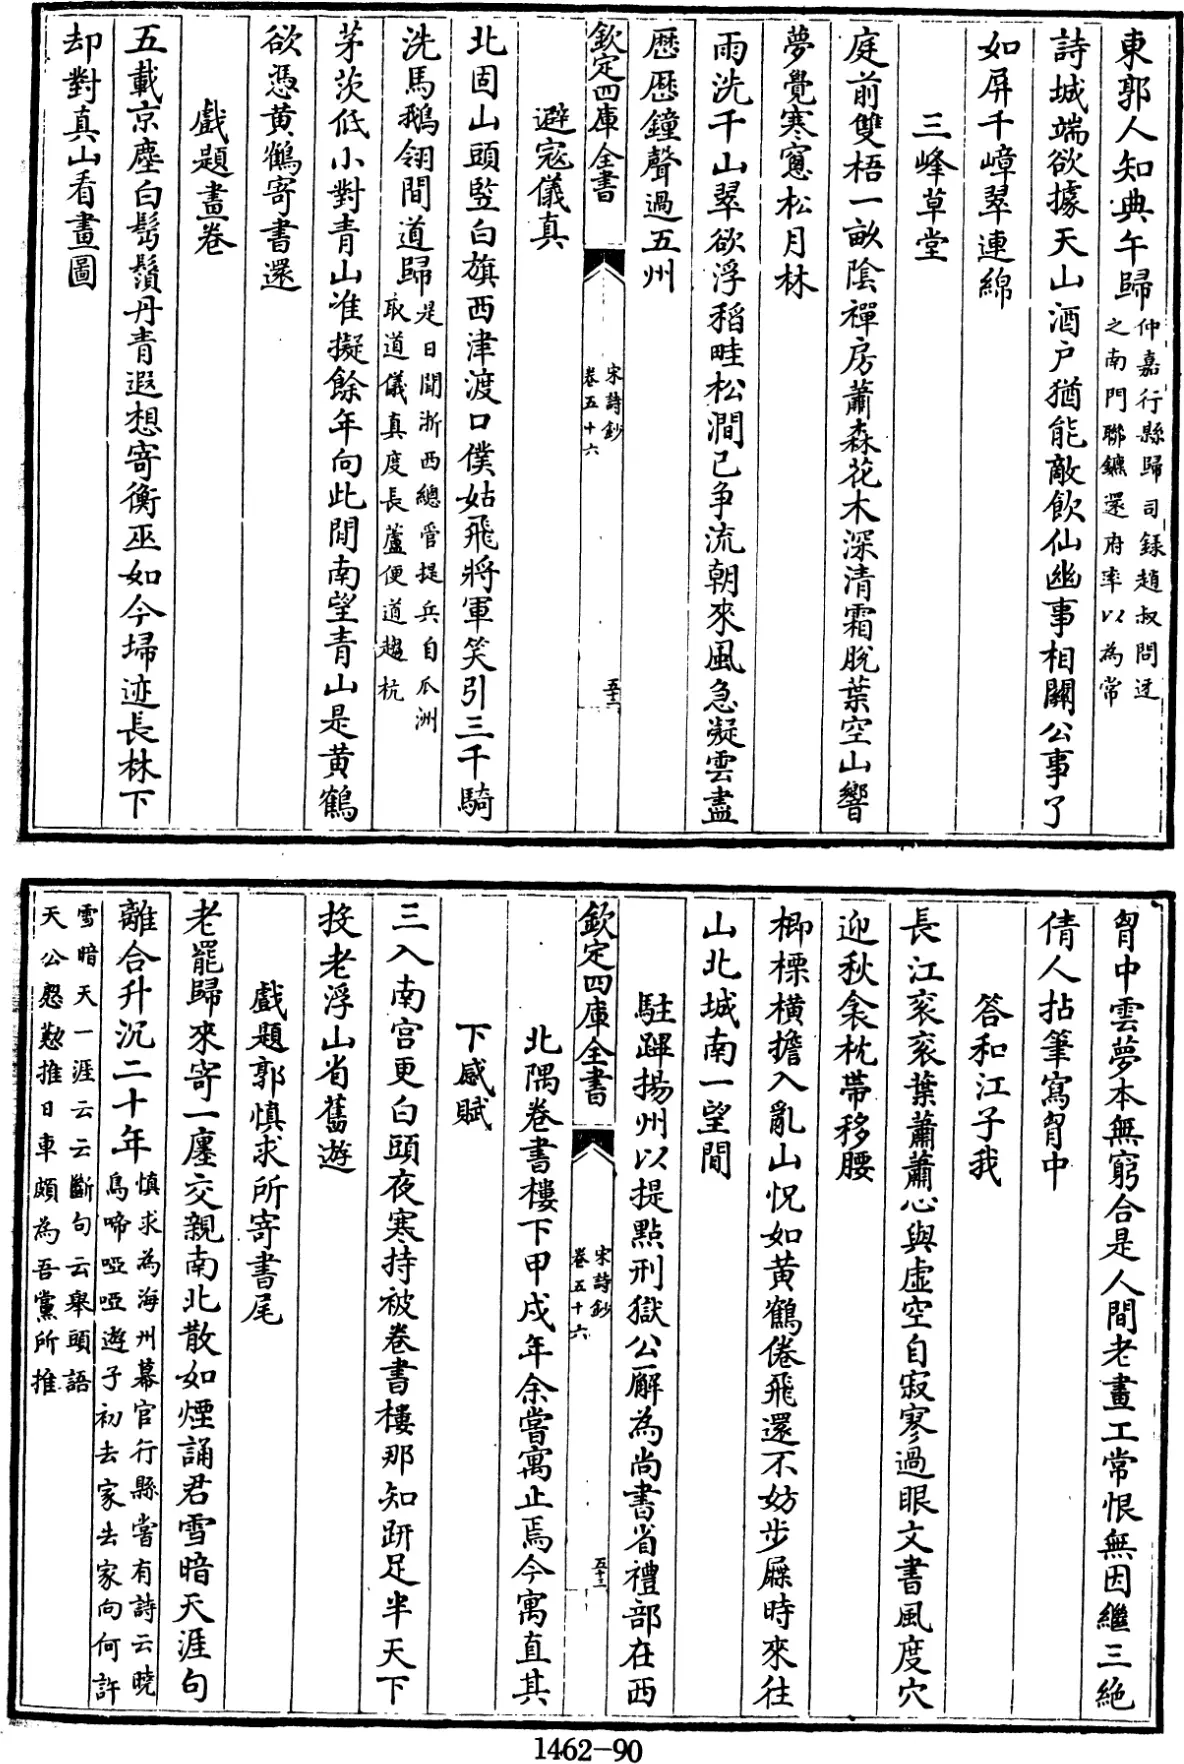 東郭人知典午歸仲嘉行縣歸司錄趙叔問迓
之南門聯鑣還府率以為常
詩城端欲據天山酒户猶能敵飲仙幽事相關公事了
如屏千嶂翠連綿
三峰草堂
庭前雙梧一畝陰禪房蕭森花木深清霜脫葉空山響
夢覺寒窻松月林
雨洗千山翠欲浮稻畦松澗已争流朝來風急凝雲盡
歴歴鐘聲過五州
欽定四庫全書
宋詩鈔
卷五十六
避宼儀真
北固山頭竪白旗西津渡口僕姑飛將軍笑引三千騎
洗馬鵝翎間道歸是日聞浙西總管提兵自瓜洲
取道儀真度長蘆便道趨杭
茅茨低小對青山准擬餘年向此閒南望青山是黄鶴
欲憑黄鶴寄書還
戲題畫卷
五載京塵白髩鬚丹青遐想寄衡巫如今掃迹長林下
却對真山看畫圖
胷中雲夢本無窮合是人間老畫工常恨無因繼三絶
倩人拈筆寫胷中
答和江子我
長江衮衮葉蕭蕭心與虚空自寂寥過眼文書風度穴
迎秋衾枕帶移腰
楖㮚横擔入亂山怳如黄鶴倦飛還不妨步屧時來往
山北城南一望間
駐蹕揚州以提點刑獄公廨為尚書省禮部在西
欽定四庫全書
宋詩鈔
卷五十六
北隅卷書樓下甲戌年余嘗寓止焉今寓直其
下感賦
三入南宫更白頭夜寒持被卷書樓那知趼足半天下
投老浮山省舊遊
戲題郭慎求所寄書尾
老罷歸來寄一廛交親南北散如煙誦君雪暗天涯句
離合升沉二十年慎求為海州幕官行縣嘗有詩云曉
烏啼啞啞遊子初去家去家向何許
雪暗天一涯云云斷句云舉頭語
天公慇懃推日車頗為吾黨所推
1462-90